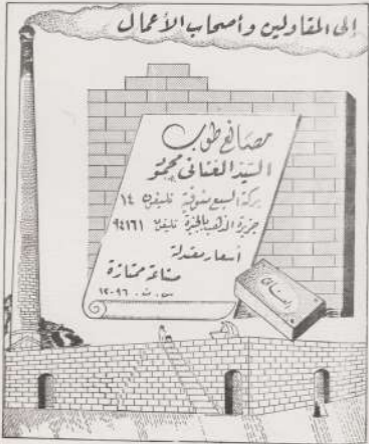 إلى المقاولين وأصحاب الأعمال
مصانع طوب
السيد العنانى محمود
بركة السبع منوفية تليفون ١٤
جزيرة الذهب بالجيزة تليفون ٩٤١٦١
أسعار معتدلة
صناعة ممتازة
س . ت . ١٢٠٩٦